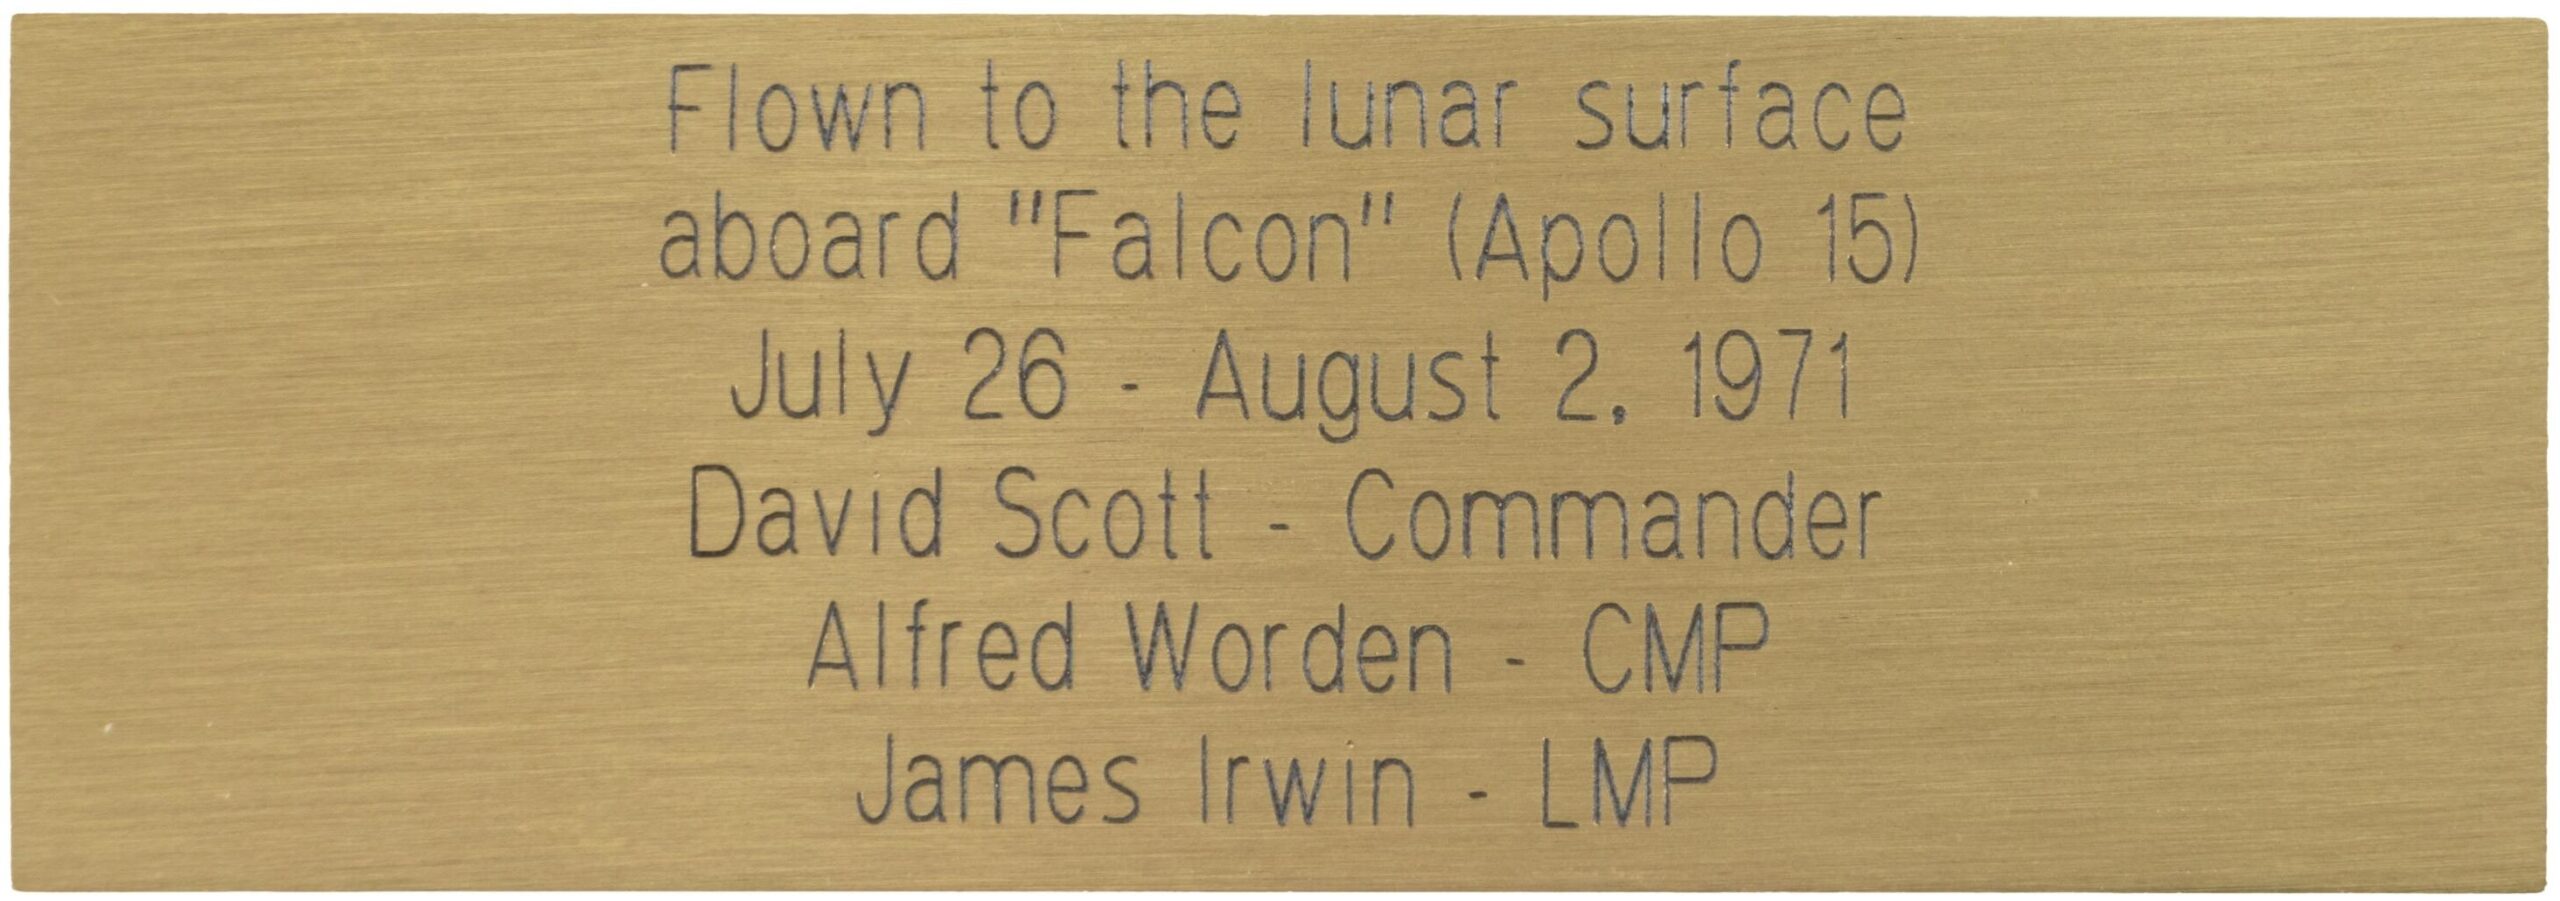 Flown to the lunar surface
aboard "Falcon" (Apollo 15)
July 26 - August 2, 1971
David Scott - Commander
Alfred Worden - CMP
James Irwin - LMP